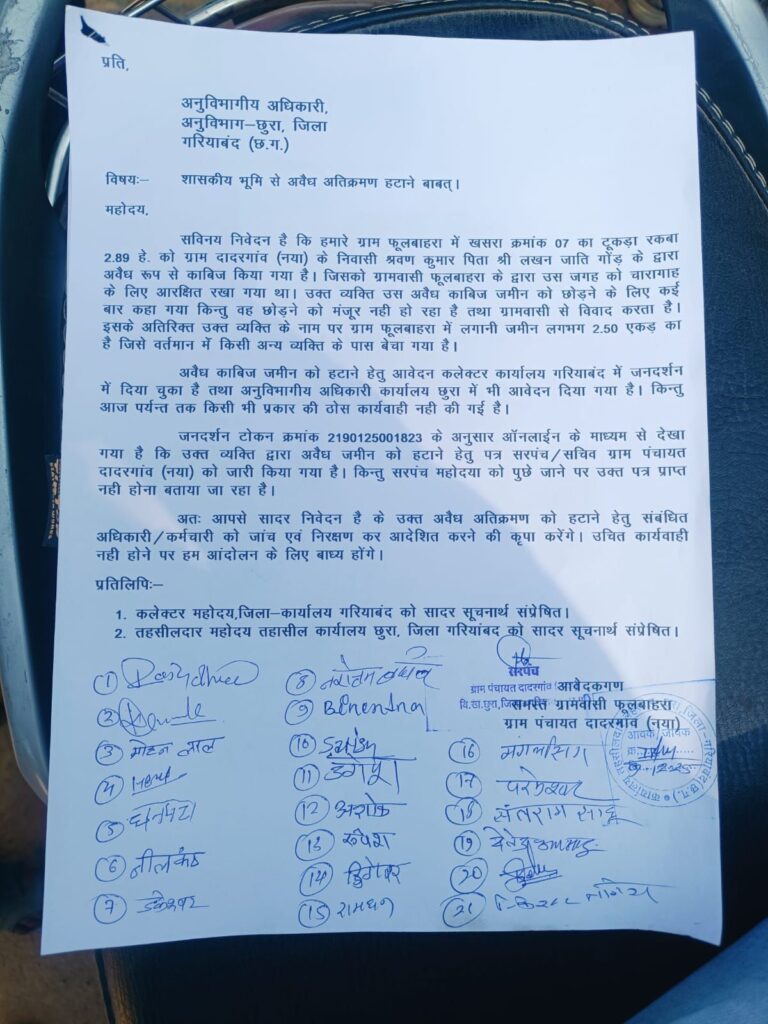 प्रति,
अनुविभागीय अधिकारी,
अनुविभाग–छुरा, जिला
गरियाबंद (छ.ग.)
विषयः– शासकीय भूमि से अवैध अतिक्रमण हटाने बाबत्।
महोदय,
सविनय निवेदन है कि हमारे ग्राम फूलबाहरा में खसरा क्रमांक 07 का टूकड़ा रकबा
2.89 हे. को ग्राम दादरगांव (नया) के निवासी श्रवण कुमार पिता श्री लखन जाति गोंड़ के द्वारा
अवैध रूप से काबिज किया गया है। जिसको ग्रामवासी फूलबाहरा के द्वारा उस जगह को चारागाह
के लिए आरक्षित रखा गया था। उक्त व्यक्ति उस अवैध काबिज जमीन को छोड़ने के लिए कई
बार कहा गया किन्तु वह छोड़ने को मंजूर नही हो रहा है तथा ग्रामवासी से विवाद करता है।
इसके अतिरिक्त उक्त व्यक्ति के नाम पर ग्राम फूलबाहरा में लगानी जमीन लगभग 2.50 एकड़ का
है जिसे वर्तमान में किसी अन्य व्यक्ति के पास बेचा गया है।
अवैध काबिज जमीन को हटाने हेतु आवेदन कलेक्टर कार्यालय गरियाबंद में जनदर्शन
में दिया चुका है तथा अनुविभागीय अधिकारी कार्यालय छुरा में भी आवेदन दिया गया है। किन्तु
आज पर्यन्त तक किसी भी प्रकार की ठोस कार्यवाही नही की गई है।
जनदर्शन टोकन क्रमांक 2190125001823 के अनुसार ऑनलाईन के माध्यम से देखा
गया है कि उक्त व्यक्ति द्वारा अवैध जमीन को हटाने हेतु पत्र सरपंच/सचिव ग्राम पंचायत
दादरगांव (नया) को जारी किया गया है। किन्तु सरपंच महोदया को पुछे जाने पर उक्त पत्र प्राप्त
नही होना बताया जा रहा है।
अतः आपसे सादर निवेदन है के उक्त अवैध अतिक्रमण को हटाने हेतु संबंधित
अधिकारी/कर्मचारी को जांच एवं निरक्षण कर आदेशित करने की कृपा करेंगे। उचित कार्यवाही
नही होने पर हम आंदोलन के लिए बाध्य होंगे।
प्रतिलिपिः–
1. कलेक्टर महोदय,जिला–कार्यालय गरियाबंद को सादर सूचनार्थ संप्रेषित।
2. तहसीलदार महोदय तहासील कार्यालय छुरा, जिला गरियांबद को सादर सूचनार्थ संप्रेषित।
सरपंच
ग्राम पंचायत दादरगांव
वि.खा.छुरा,जिला
आवेदकगण
समस्त ग्रामवासी फूलबाहरा
ग्राम पंचायत दादरगांव (नया)
आवक/जावक
1
2
3 मोहन लाल
4
5
6 नीलकंठ
7
8
9
10
11
12 अशोक
13 रूपेश
14
15 रामधन
16 मंगलसिंग
17 परमेश्वर
18 संतराम साहू
19
20
21